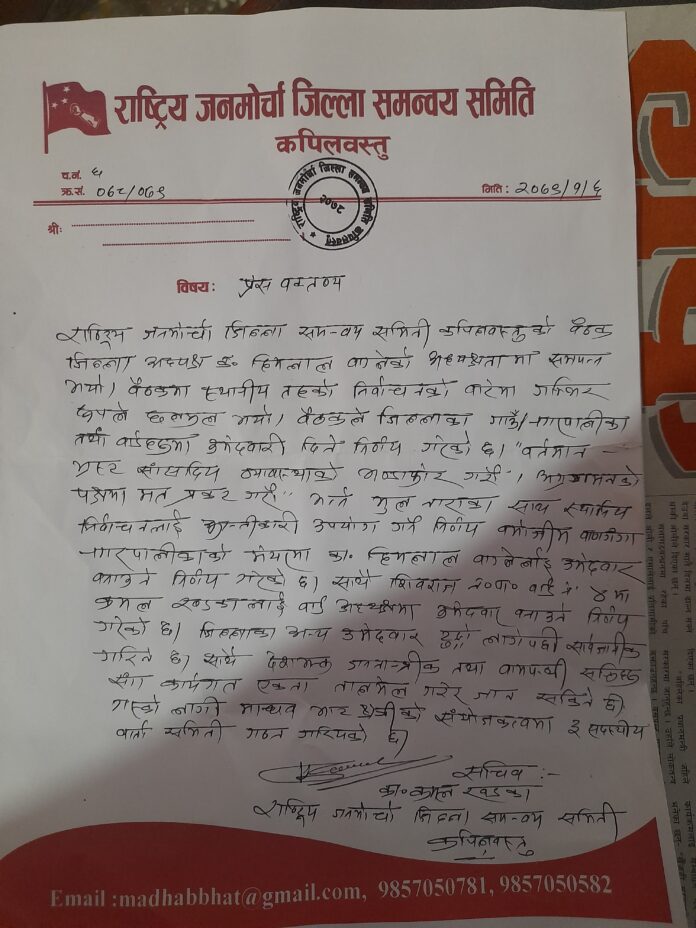 राष्ट्रिय जनमोर्चा जिल्ला समन्वय समिति
कपिलवस्तु
प.नं. ६
क्र.सं. ०७८/०७९
मिति : २०७९/१/६
राष्ट्रिय जनमोर्चा जिल्ला समन्वय समिति कपिलवस्तु
२०७८
श्री:
विषय: प्रेस वक्तव्य
राष्ट्रिय जनमोर्चा जिल्ला समन्वय समिती कपिलवस्तुको बैठक
जिल्ला अध्यक्ष क. हिमलाल वाग्लेको अध्यक्षतामा सम्पन्न
भयो। बैठकमा स्थानीय तहको निर्वाचनको बारेमा गम्भिर
रूपले छलफल भयो। बैठकले जिल्लाका गाउँ/नगरपालीका
तथा वार्डहरुमा उमेदवारी दिने निर्णय गरेको छ। "वर्तमान
भ्रष्ट सांसदिय व्यवास्थाको भण्डाफोर गरौं", अग्रगमनको
पक्षमा मत प्रकट गरौं" भन्ने मुल नाराका साथ स्थानिय
निर्वाचनलाई क्रान्तीकारी उपयोग गर्ने निर्णय बमोजीम बाणगंगा
नगरपालीकाको मेयरमा का. हिमलाल वाग्लेलाई उमेदवार
बनाउने निर्णय गरेको छ। साथै शिवराज न०पा० वार्ड नं ४ मा
कमल खड्कालाई वार्ड अध्यक्षमा उमेदवार बनाउने निर्णय
गरेको छ। जिल्लाका अन्य उमेदवार टुङ्गो लागेपछी सार्वजानीक
गरिने छ। साथै देशभक्त जनतान्त्रीक तथा वामपन्थी
संग कार्यगत एकता तालमेल गरेर जान सकिने छ।
त्यस्को लागी माधव भाट क्षेत्रीको संयोजकत्वमा ३ सदस्यीय
वार्ता समिती गठन गरिएको छ।
सचिव :-
का. कमल खड्का
राष्ट्रिय जनमोर्चा जिल्ला समन्वय समिती
कपिलवस्तु
Email :madhabbhat@gmail.com, 9857050781, 9857050582